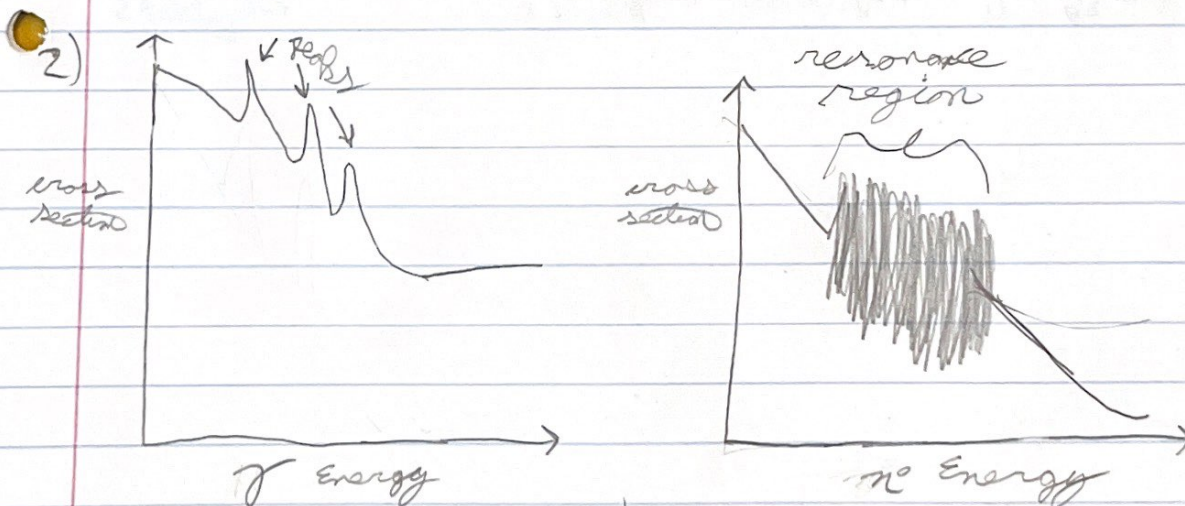 2)
Peaks
cross
section
γ Energy
resonance
region
cross
section
n° Energy